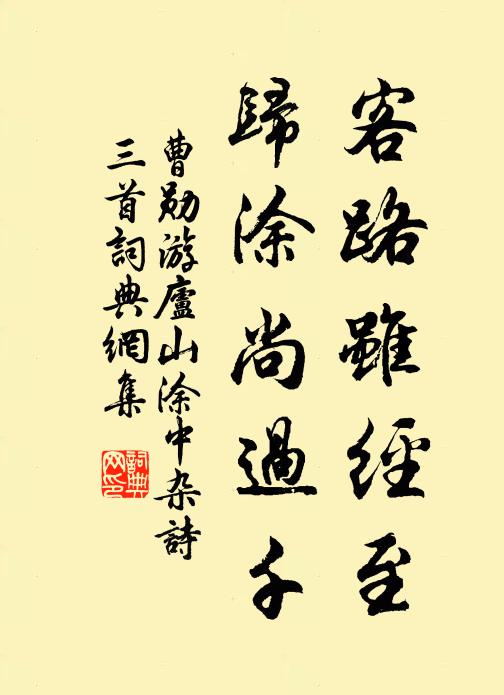 客路雖經至
歸涂尚過千
曹勛游廬山涂中杂詩
三首詞典網集
詞典
网印